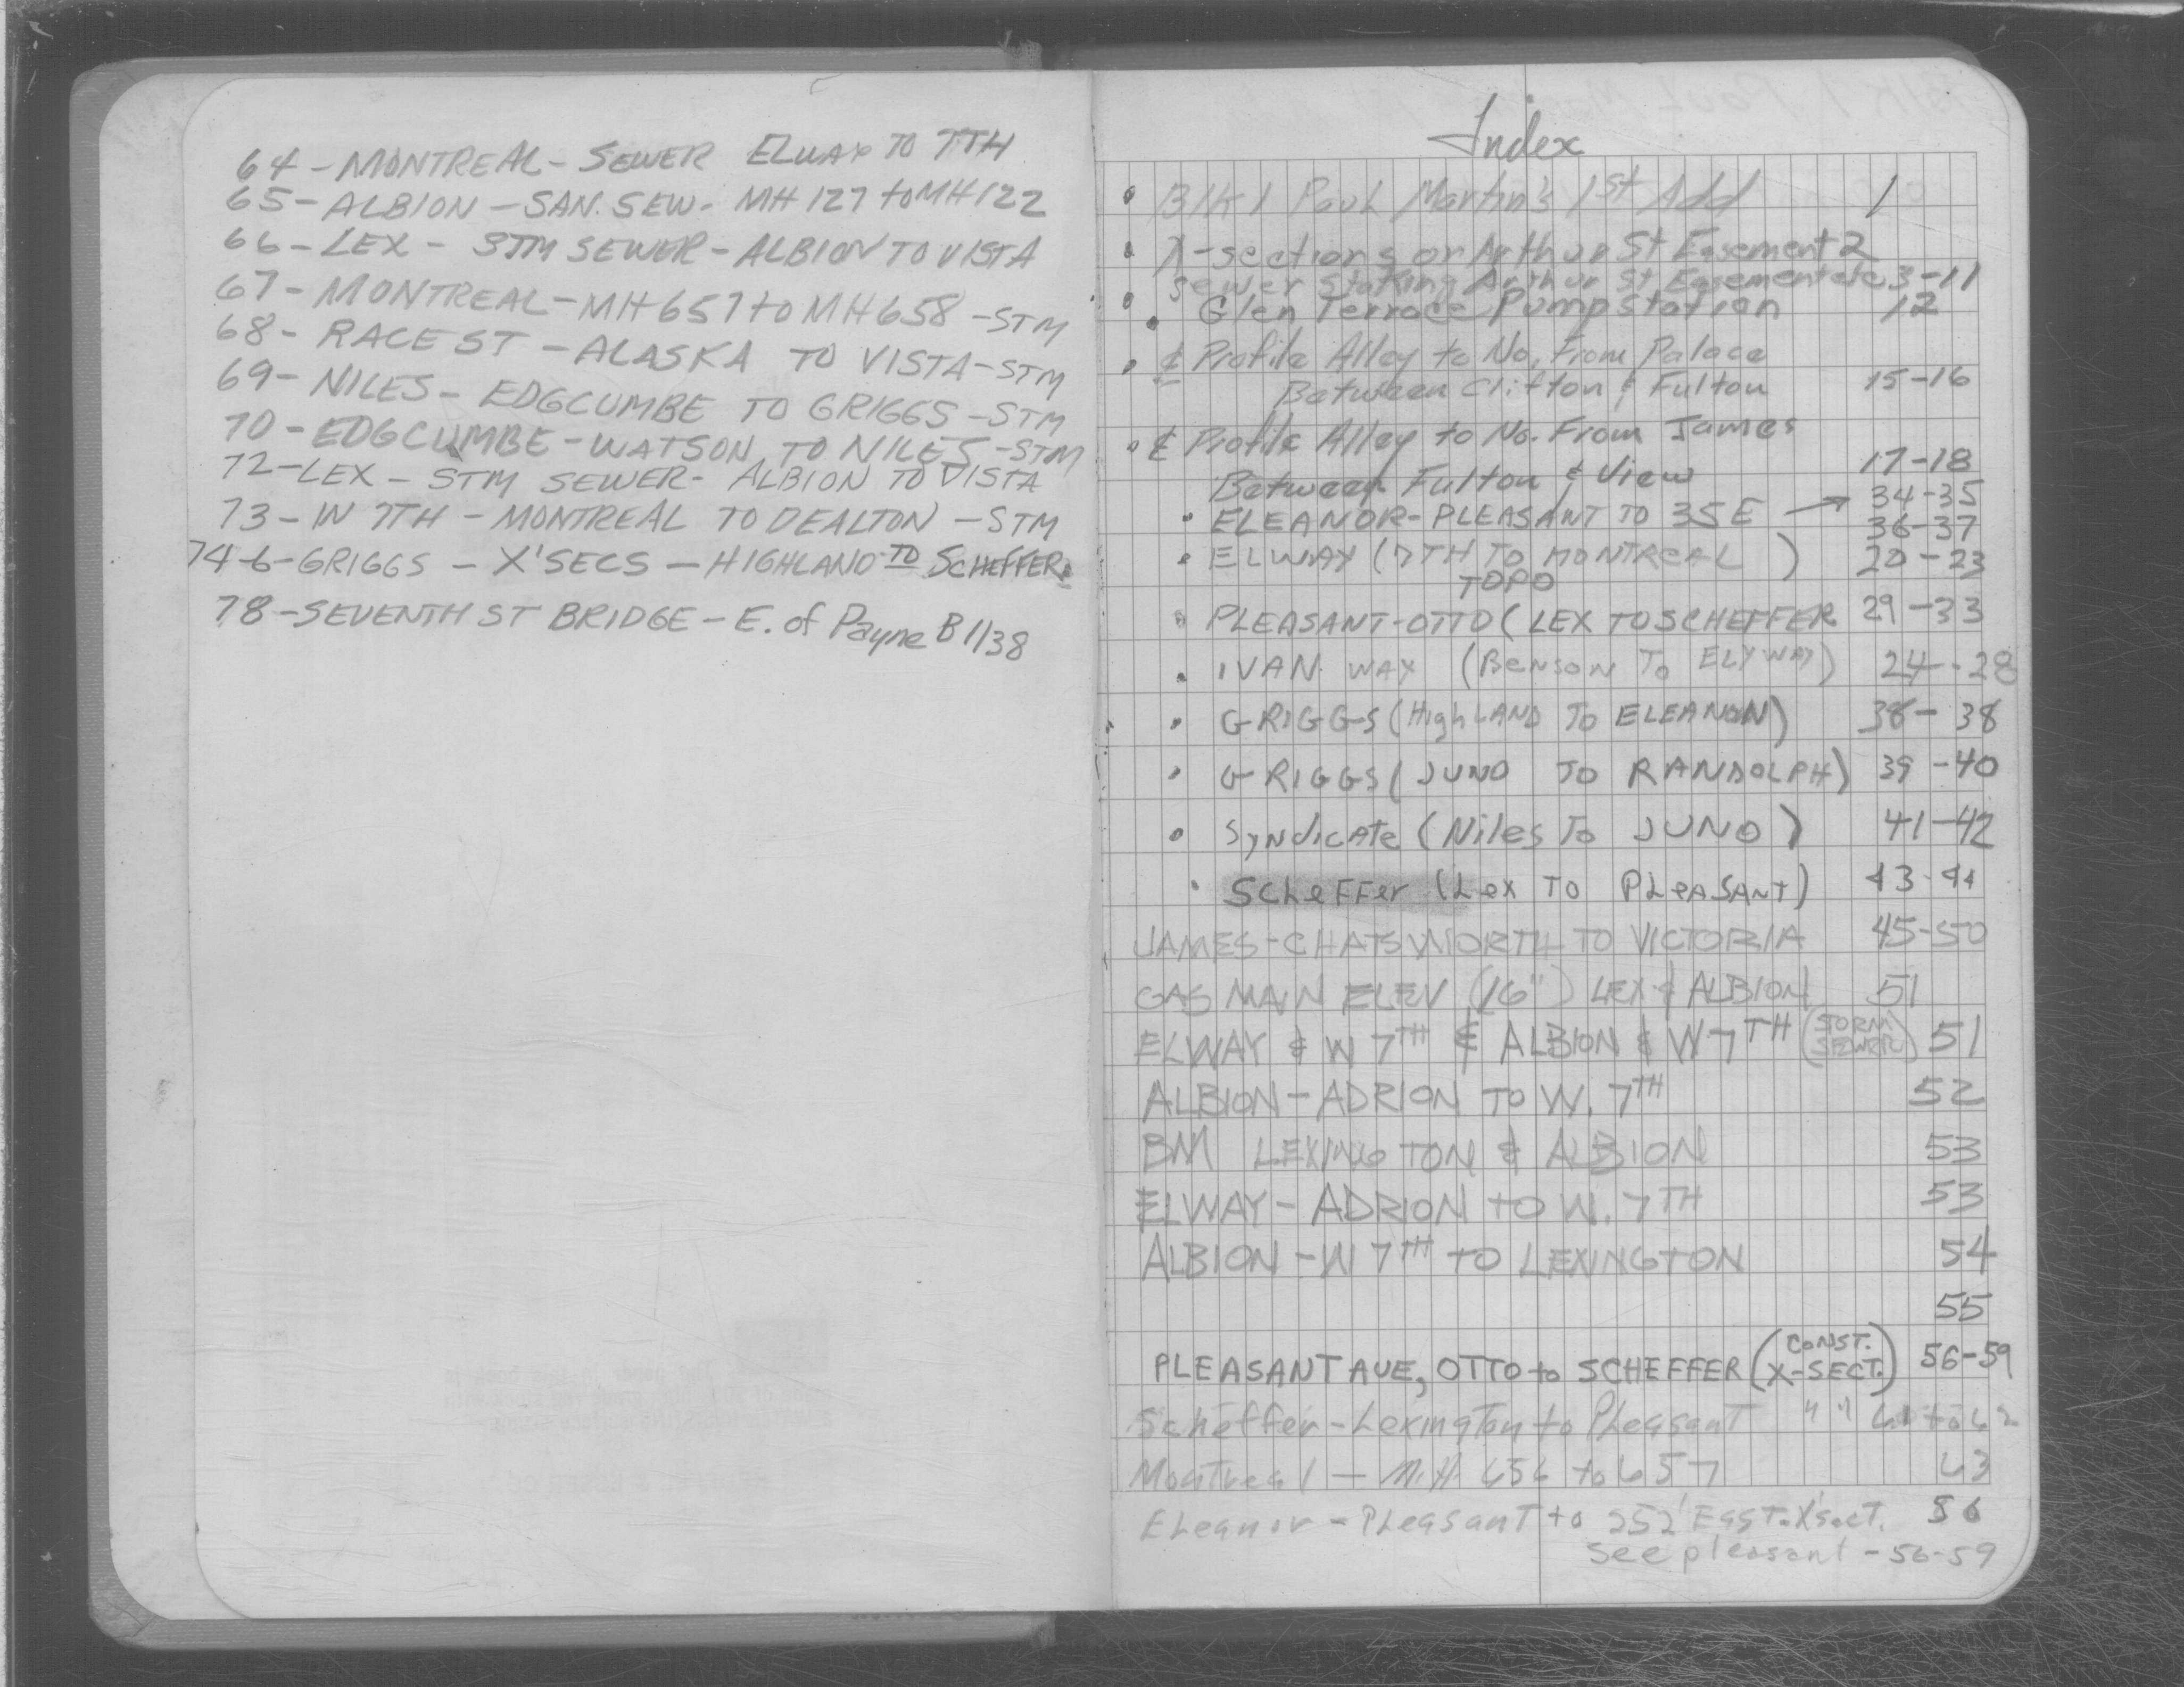 64 - MONTREAL - SEWER ELWAY TO 7TH
65 - ALBION - SAN. SEW. MH 127 to MH 122
66 - LEX - STM SEWER - ALBION TO VISTA
67 - MONTREAL - MH 657 to MH 658 - STM
68 - RACE ST - ALASKA TO VISTA - STM
69 - NILES - EDGCUMBE TO GRIGGS - STM
70 - EDGCUMBE - WATSON TO NILES - STM
72 - LEX - STM SEWER - ALBION TO VISTA
73 - IN 7TH - MONTREAL TO DEALTON - STM
74-6 - GRIGGS - X'SECS - HIGHLAND TO SCHEFFER
78 - SEVENTH ST BRIDGE - E. of Payne B 1/38
Index
Blk 1 Paul Martin's 1st Add 1
X-sections or Arthur St Easement 2
Sewer Staking Arthur St Easement etc 3-11
Glen Terrace Pump Station 12
℄ Profile Alley to No. From Palace
Between Clifton & Fulton 15-16
℄ Profile Alley to No. From James
Between Fulton & View 17-18
ELEANOR - PLEASANT TO 35E → 34-35
36-37
ELWAY (7TH TO MONTREAL) 20-23
TOPO
PLEASANT-OTTO (LEX TO SCHEFFER 29-33
IVAN WAY (BENSON TO ELYWAY) 24-28
GRIGGS (HighLAND TO ELEANON) 38-38
GRIGGS (JUNO TO RANDOLPH) 39-40
SYNDICATE (Niles To JUNO) 41-42
Scheffer (Lex TO PLeASANT) 43-44
JAMES - CHATSWORTH TO VICTORIA 45-50
GAS MAIN ELEV (16") LEX & ALBION 51
ELWAY & W 7TH & ALBION & W. 7TH (STORM SEWER) 51
ALBION - ADRION TO W. 7TH 52
BM LEXINGTON & ALBION 53
ELWAY - ADRION TO W. 7TH 53
ALBION - W 7TH TO LEXINGTON 54
55
PLEASANT AVE, OTTO to SCHEFFER (CONST. X-SECT.) 56-59
Scheffer - Lexington to Pleasant " " 61 to 62
Montreal - M.H. 656 to 657 63
Eleanor - Pleasant to 252' East. X'sect. 56
see pleasant - 56-59